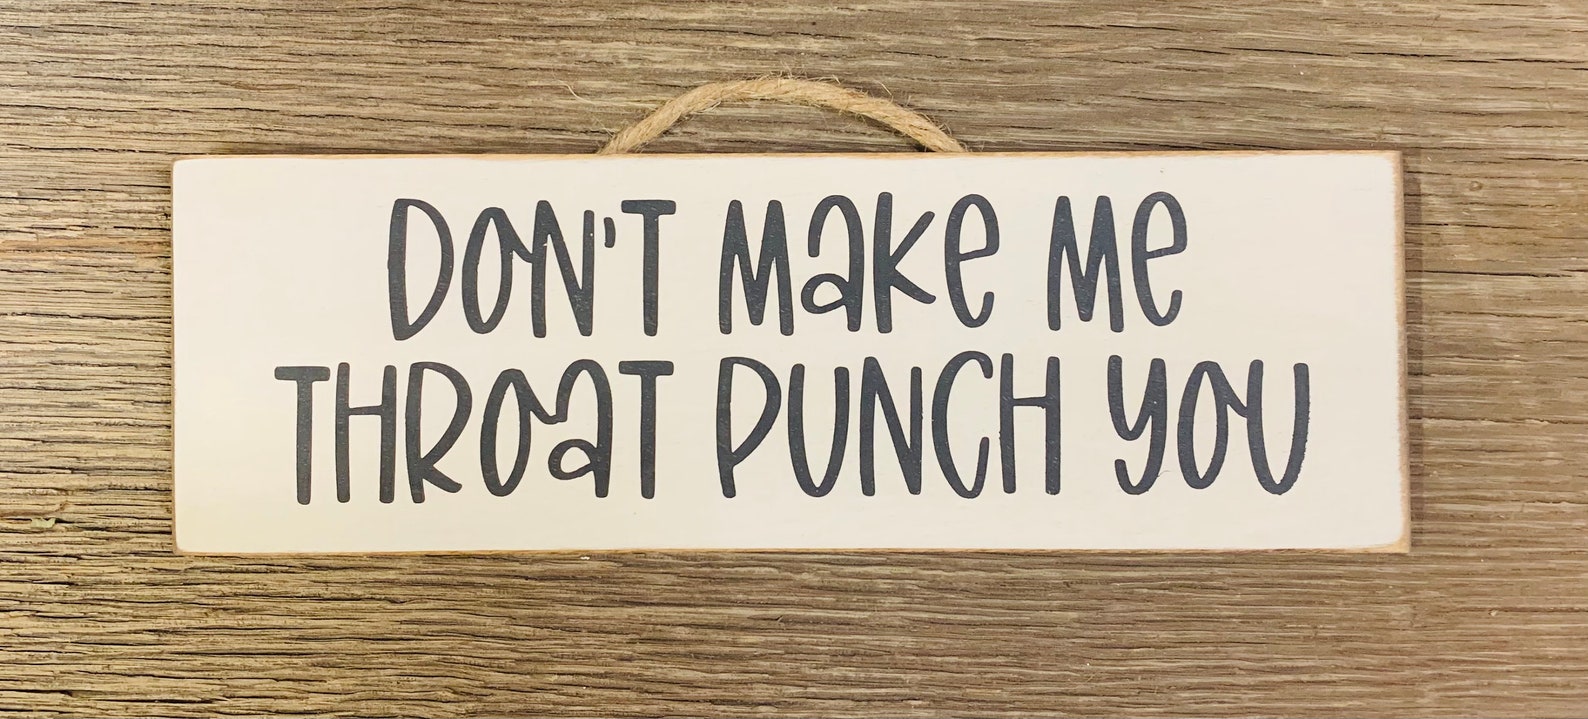 DON'T MaKe Me
THROaT PUNCH YOU